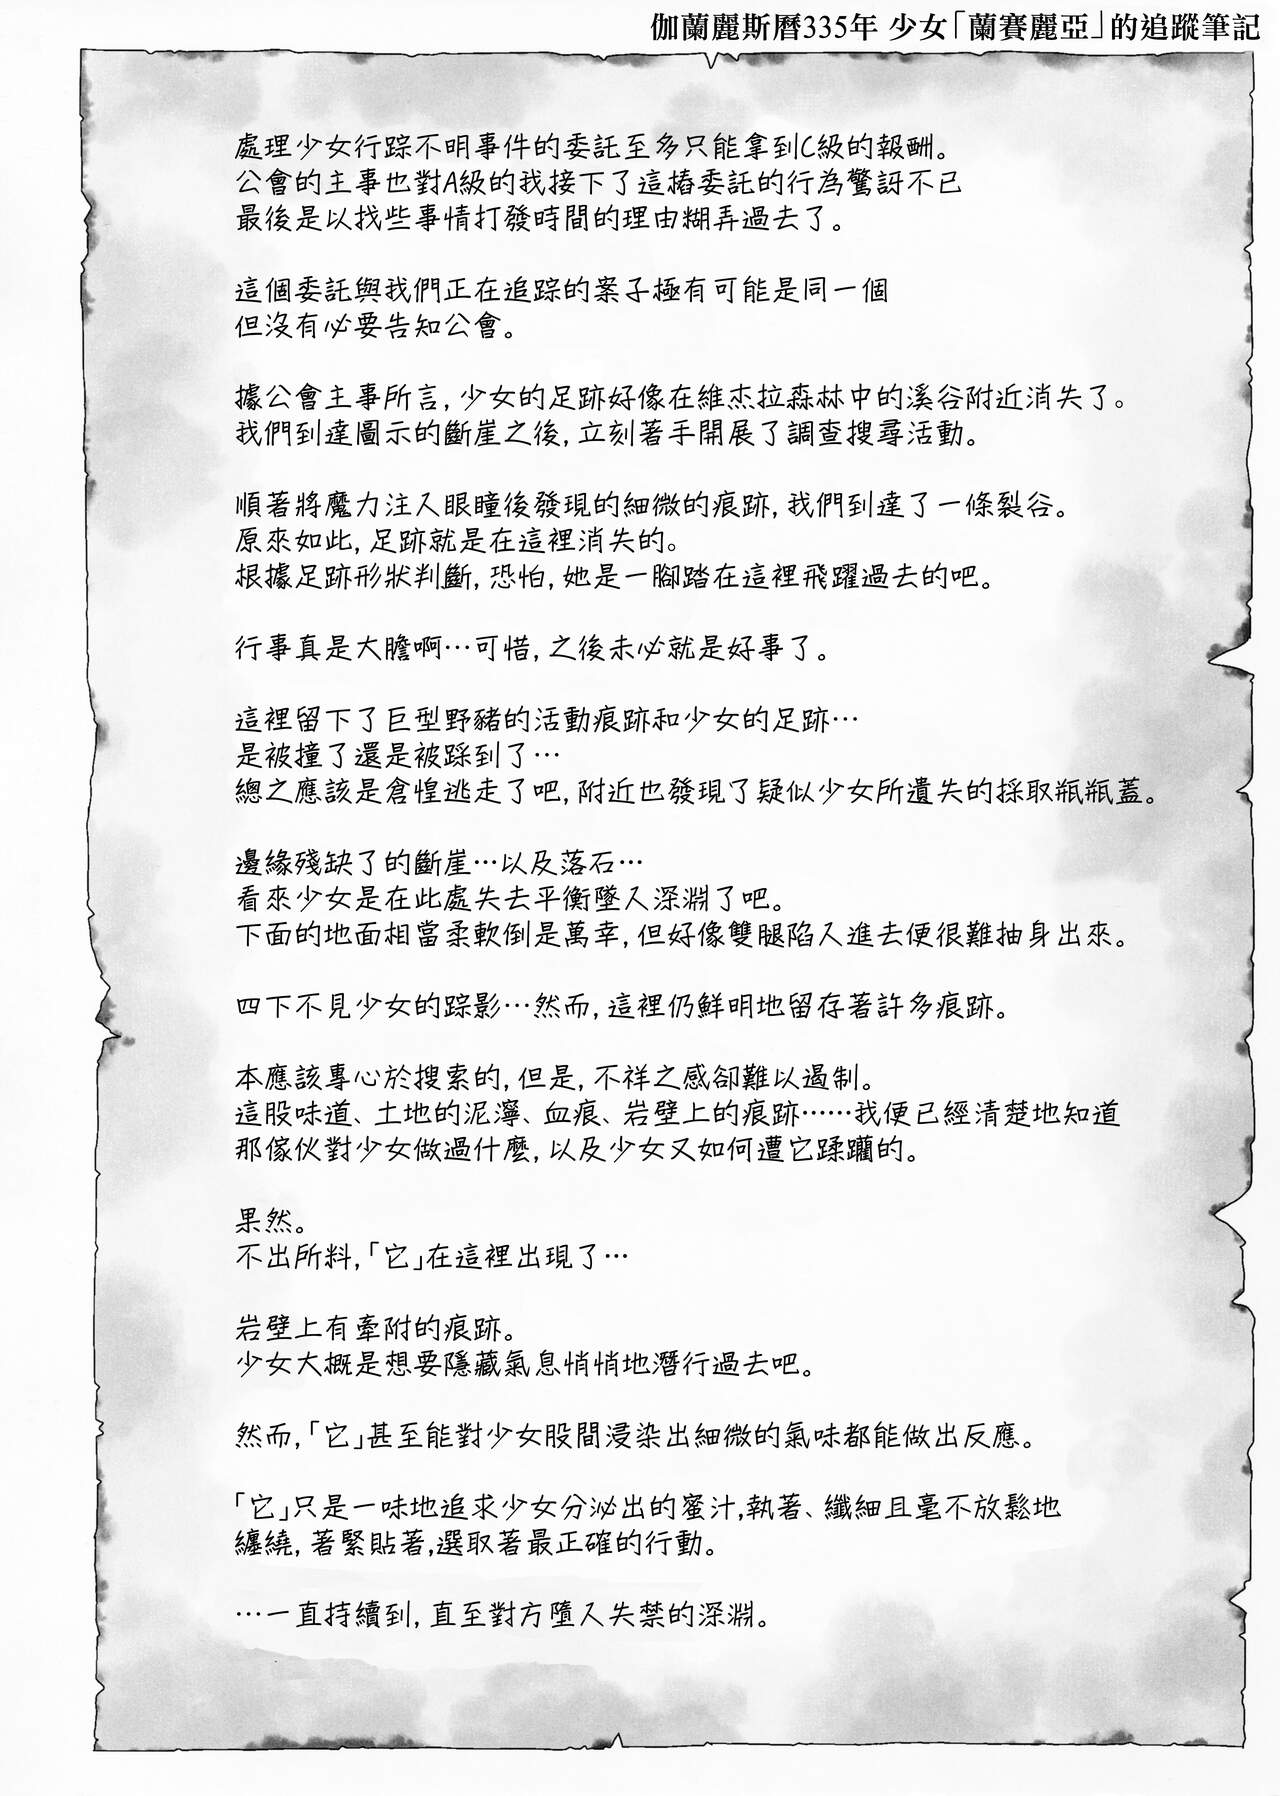 伽蘭麗斯曆335年 少女「蘭賽麗亞」的追蹤筆記
處理少女行踪不明事件的委託至多只能拿到C級的報酬。
公會的主事也對A級的我接下了這樁委託的行為驚訝不已
最後是以找些事情打發時間的理由糊弄過去了。
這個委託與我們正在追踪的案子極有可能是同一個
但沒有必要告知公會。
據公會主事所言,少女的足跡好像在維杰拉森林中的溪谷附近消失了。
我們到達圖示的斷崖之後,立刻著手開展了調查搜尋活動。
順著將魔力注入眼瞳後發現的細微的痕跡,我們到達了一條裂谷。
原來如此,足跡就是在這裡消失的。
根據足跡形狀判斷,恐怕,她是一腳踏在這裡飛躍過去的吧。
行事真是大膽啊…可惜,之後未必就是好事了。
這裡留下了巨型野豬的活動痕跡和少女的足跡…
是被撞了還是被踩到了…
總之應該是倉惶逃走了吧,附近也發現了疑似少女所遺失的採取瓶瓶蓋。
邊緣殘缺了的斷崖…以及落石…
看來少女是在此處失去平衡墜入深淵了吧。
下面的地面相當柔軟倒是萬幸,但好像雙腿陷入進去便很難抽身出來。
四下不見少女的踪影…然而,這裡仍鮮明地留存著許多痕跡。
本應該專心於搜索的,但是,不祥之感卻難以遏制。
這股味道、土地的泥濘、血痕、岩壁上的痕跡……我便已經清楚地知道
果然。
不出所料,「它」在這裡出現了…
岩壁上有牽附的痕跡。
少女大概是想要隱藏氣息悄悄地潛行過去吧。